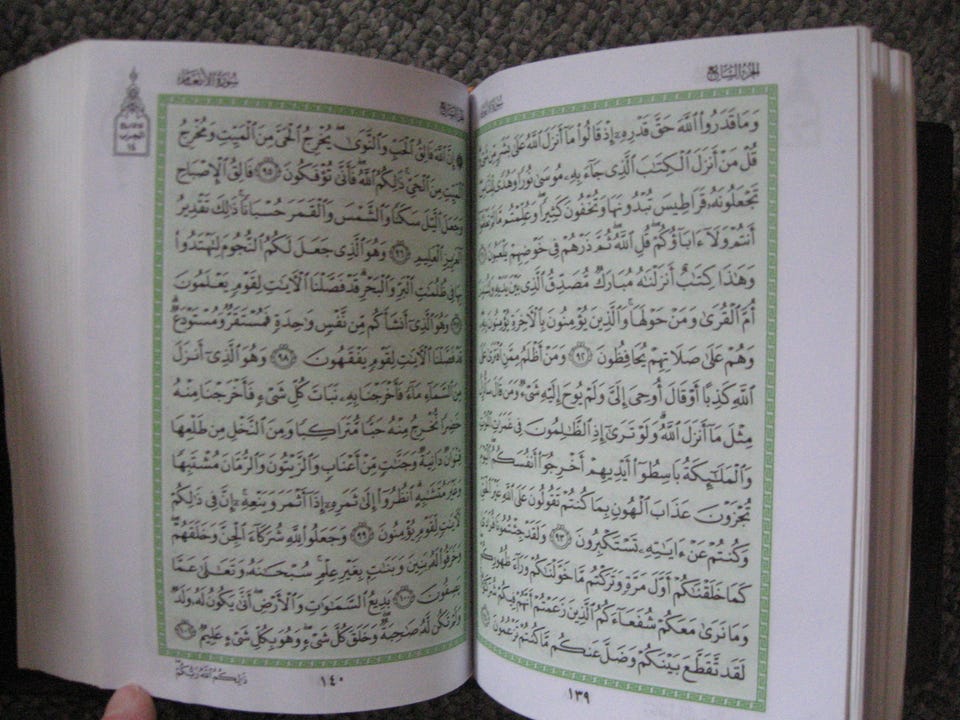 الجزء السابع
سورة الأنعام
وَمَا قَدَرُوا۟ ٱللَّهَ حَقَّ قَدْرِهِۦٓ إِذْ قَالُوا۟ مَآ أَنزَلَ ٱللَّهُ عَلَىٰ بَشَرٍ مِّن شَىْءٍ
قُلْ مَنْ أَنزَلَ ٱلْكِتَٰبَ ٱلَّذِى جَآءَ بِهِۦ مُوسَىٰ نُورًا وَهُدًى لِّلنَّاسِ
تَجْعَلُونَهُۥ قَرَاطِيسَ تُبْدُونَهَا وَتُخْفُونَ كَثِيرًا وَعُلِّمْتُم مَّا لَمْ تَعْلَمُوٓا۟
أَنتُمْ وَلَآ ءَابَآؤُكُمْ قُلِ ٱللَّهُ ثُمَّ ذَرْهُمْ فِى خَوْضِهِمْ يَلْعَبُونَ
وَهَٰذَا كِتَٰبٌ أَنزَلْنَٰهُ مُبَارَكٌ مُّصَدِّقُ ٱلَّذِى بَيْنَ يَدَيْهِ وَلِتُنذِرَ
أُمَّ ٱلْقُرَىٰ وَمَنْ حَوْلَهَا وَٱلَّذِينَ يُؤْمِنُونَ بِٱلْءَاخِرَةِ يُؤْمِنُونَ بِهِۦ
وَهُمْ عَلَىٰ صَلَاتِهِمْ يُحَافِظُونَ ٩٢ وَمَنْ أَظْلَمُ مِمَّنِ ٱفْتَرَىٰ عَلَى
ٱللَّهِ كَذِبًا أَوْ قَالَ أُوحِىَ إِلَىَّ وَلَمْ يُوحَ إِلَيْهِ شَىْءٌ وَمَن قَالَ سَأُنزِلُ
مِثْلَ مَآ أَنزَلَ ٱللَّهُ وَلَوْ تَرَىٰٓ إِذِ ٱلظَّٰلِمُونَ فِى غَمَرَٰتِ ٱلْمَوْتِ
وَٱلْمَلَٰٓئِكَةُ بَاسِطُوٓا۟ أَيْدِيهِمْ أَخْرِجُوٓا۟ أَنفُسَكُمُ ٱلْيَوْمَ
تُجْزَوْنَ عَذَابَ ٱلْهُونِ بِمَا كُنتُمْ تَقُولُونَ عَلَى ٱللَّهِ غَيْرَ ٱلْحَقِّ
وَكُنتُمْ عَنْ ءَايَٰتِهِۦ تَسْتَكْبِرُونَ ٩٣ وَلَقَدْ جِئْتُمُونَا فُرَٰدَىٰ
كَمَا خَلَقْنَٰكُمْ أَوَّلَ مَرَّةٍ وَتَرَكْتُم مَّا خَوَّلْنَٰكُمْ وَرَآءَ ظُهُورِكُمْ
وَمَا نَرَىٰ مَعَكُمْ شُفَعَآءَكُمُ ٱلَّذِينَ زَعَمْتُمْ أَنَّهُمْ فِيكُمْ شُرَكَٰٓؤُا۟
لَقَد تَّقَطَّعَ بَيْنَكُمْ وَضَلَّ عَنكُم مَّا كُنتُمْ تَزْعُمُونَ
١٣٩
سورة الأنعام
الجزء السابع
الحزب
١٤
إِنَّ ٱللَّهَ فَالِقُ ٱلْحَبِّ وَٱلنَّوَىٰ يُخْرِجُ ٱلْحَىَّ مِنَ ٱلْمَيِّتِ وَمُخْرِجُ
ٱلْمَيِّتِ مِنَ ٱلْحَىِّ ذَٰلِكُمُ ٱللَّهُ فَأَنَّىٰ تُؤْفَكُونَ ٩٥ فَالِقُ ٱلْإِصْبَاحِ
وَجَعَلَ ٱلَّيْلَ سَكَنًا وَٱلشَّمْسَ وَٱلْقَمَرَ حُسْبَانًا ذَٰلِكَ تَقْدِيرُ
ٱلْعَزِيزِ ٱلْعَلِيمِ ٩٦ وَهُوَ ٱلَّذِى جَعَلَ لَكُمُ ٱلنُّجُومَ لِتَهْتَدُوا۟
بِهَا فِى ظُلُمَٰتِ ٱلْبَرِّ وَٱلْبَحْرِ قَدْ فَصَّلْنَا ٱلْءَايَٰتِ لِقَوْمٍ يَعْلَمُونَ
٩٧ وَهُوَ ٱلَّذِىٓ أَنشَأَكُم مِّن نَّفْسٍ وَٰحِدَةٍ فَمُسْتَقَرٌّ وَمُسْتَوْدَعٌ
قَدْ فَصَّلْنَا ٱلْءَايَٰتِ لِقَوْمٍ يَفْقَهُونَ ٩٨ وَهُوَ ٱلَّذِىٓ أَنزَلَ
مِنَ ٱلسَّمَآءِ مَآءً فَأَخْرَجْنَا بِهِۦ نَبَاتَ كُلِّ شَىْءٍ فَأَخْرَجْنَا مِنْهُ
خَضِرًا نُّخْرِجُ مِنْهُ حَبًّا مُّتَرَاكِبًا وَمِنَ ٱلنَّخْلِ مِن طَلْعِهَا
قِنْوَانٌ دَانِيَةٌ وَجَنَّٰتٍ مِّنْ أَعْنَابٍ وَٱلزَّيْتُونَ وَٱلرُّمَّانَ مُشْتَبِهًا
وَغَيْرَ مُتَشَٰبِهٍ ٱنظُرُوٓا۟ إِلَىٰ ثَمَرِهِۦٓ إِذَآ أَثْمَرَ وَيَنْعِهِۦٓ إِنَّ فِى ذَٰلِكُمْ
لَءَايَٰتٍ لِّقَوْمٍ يُؤْمِنُونَ ٩٩ وَجَعَلُوا۟ لِلَّهِ شُرَكَآءَ ٱلْجِنَّ وَخَلَقَهُمْ
وَخَرَقُوا۟ لَهُۥ بَنِينَ وَبَنَٰتٍ بِغَيْرِ عِلْمٍ سُبْحَٰنَهُۥ وَتَعَٰلَىٰ عَمَّا
يَصِفُونَ ١٠٠ بَدِيعُ ٱلسَّمَٰوَٰتِ وَٱلْأَرْضِ أَنَّىٰ يَكُونُ لَهُۥ وَلَدٌ
وَلَمْ تَكُن لَّهُۥ صَٰحِبَةٌ وَخَلَقَ كُلَّ شَىْءٍ وَهُوَ بِكُلِّ شَىْءٍ عَلِيمٌ ١٠١
ذَٰلِكُمُ ٱللَّهُ رَبُّكُمْ
١٤٠